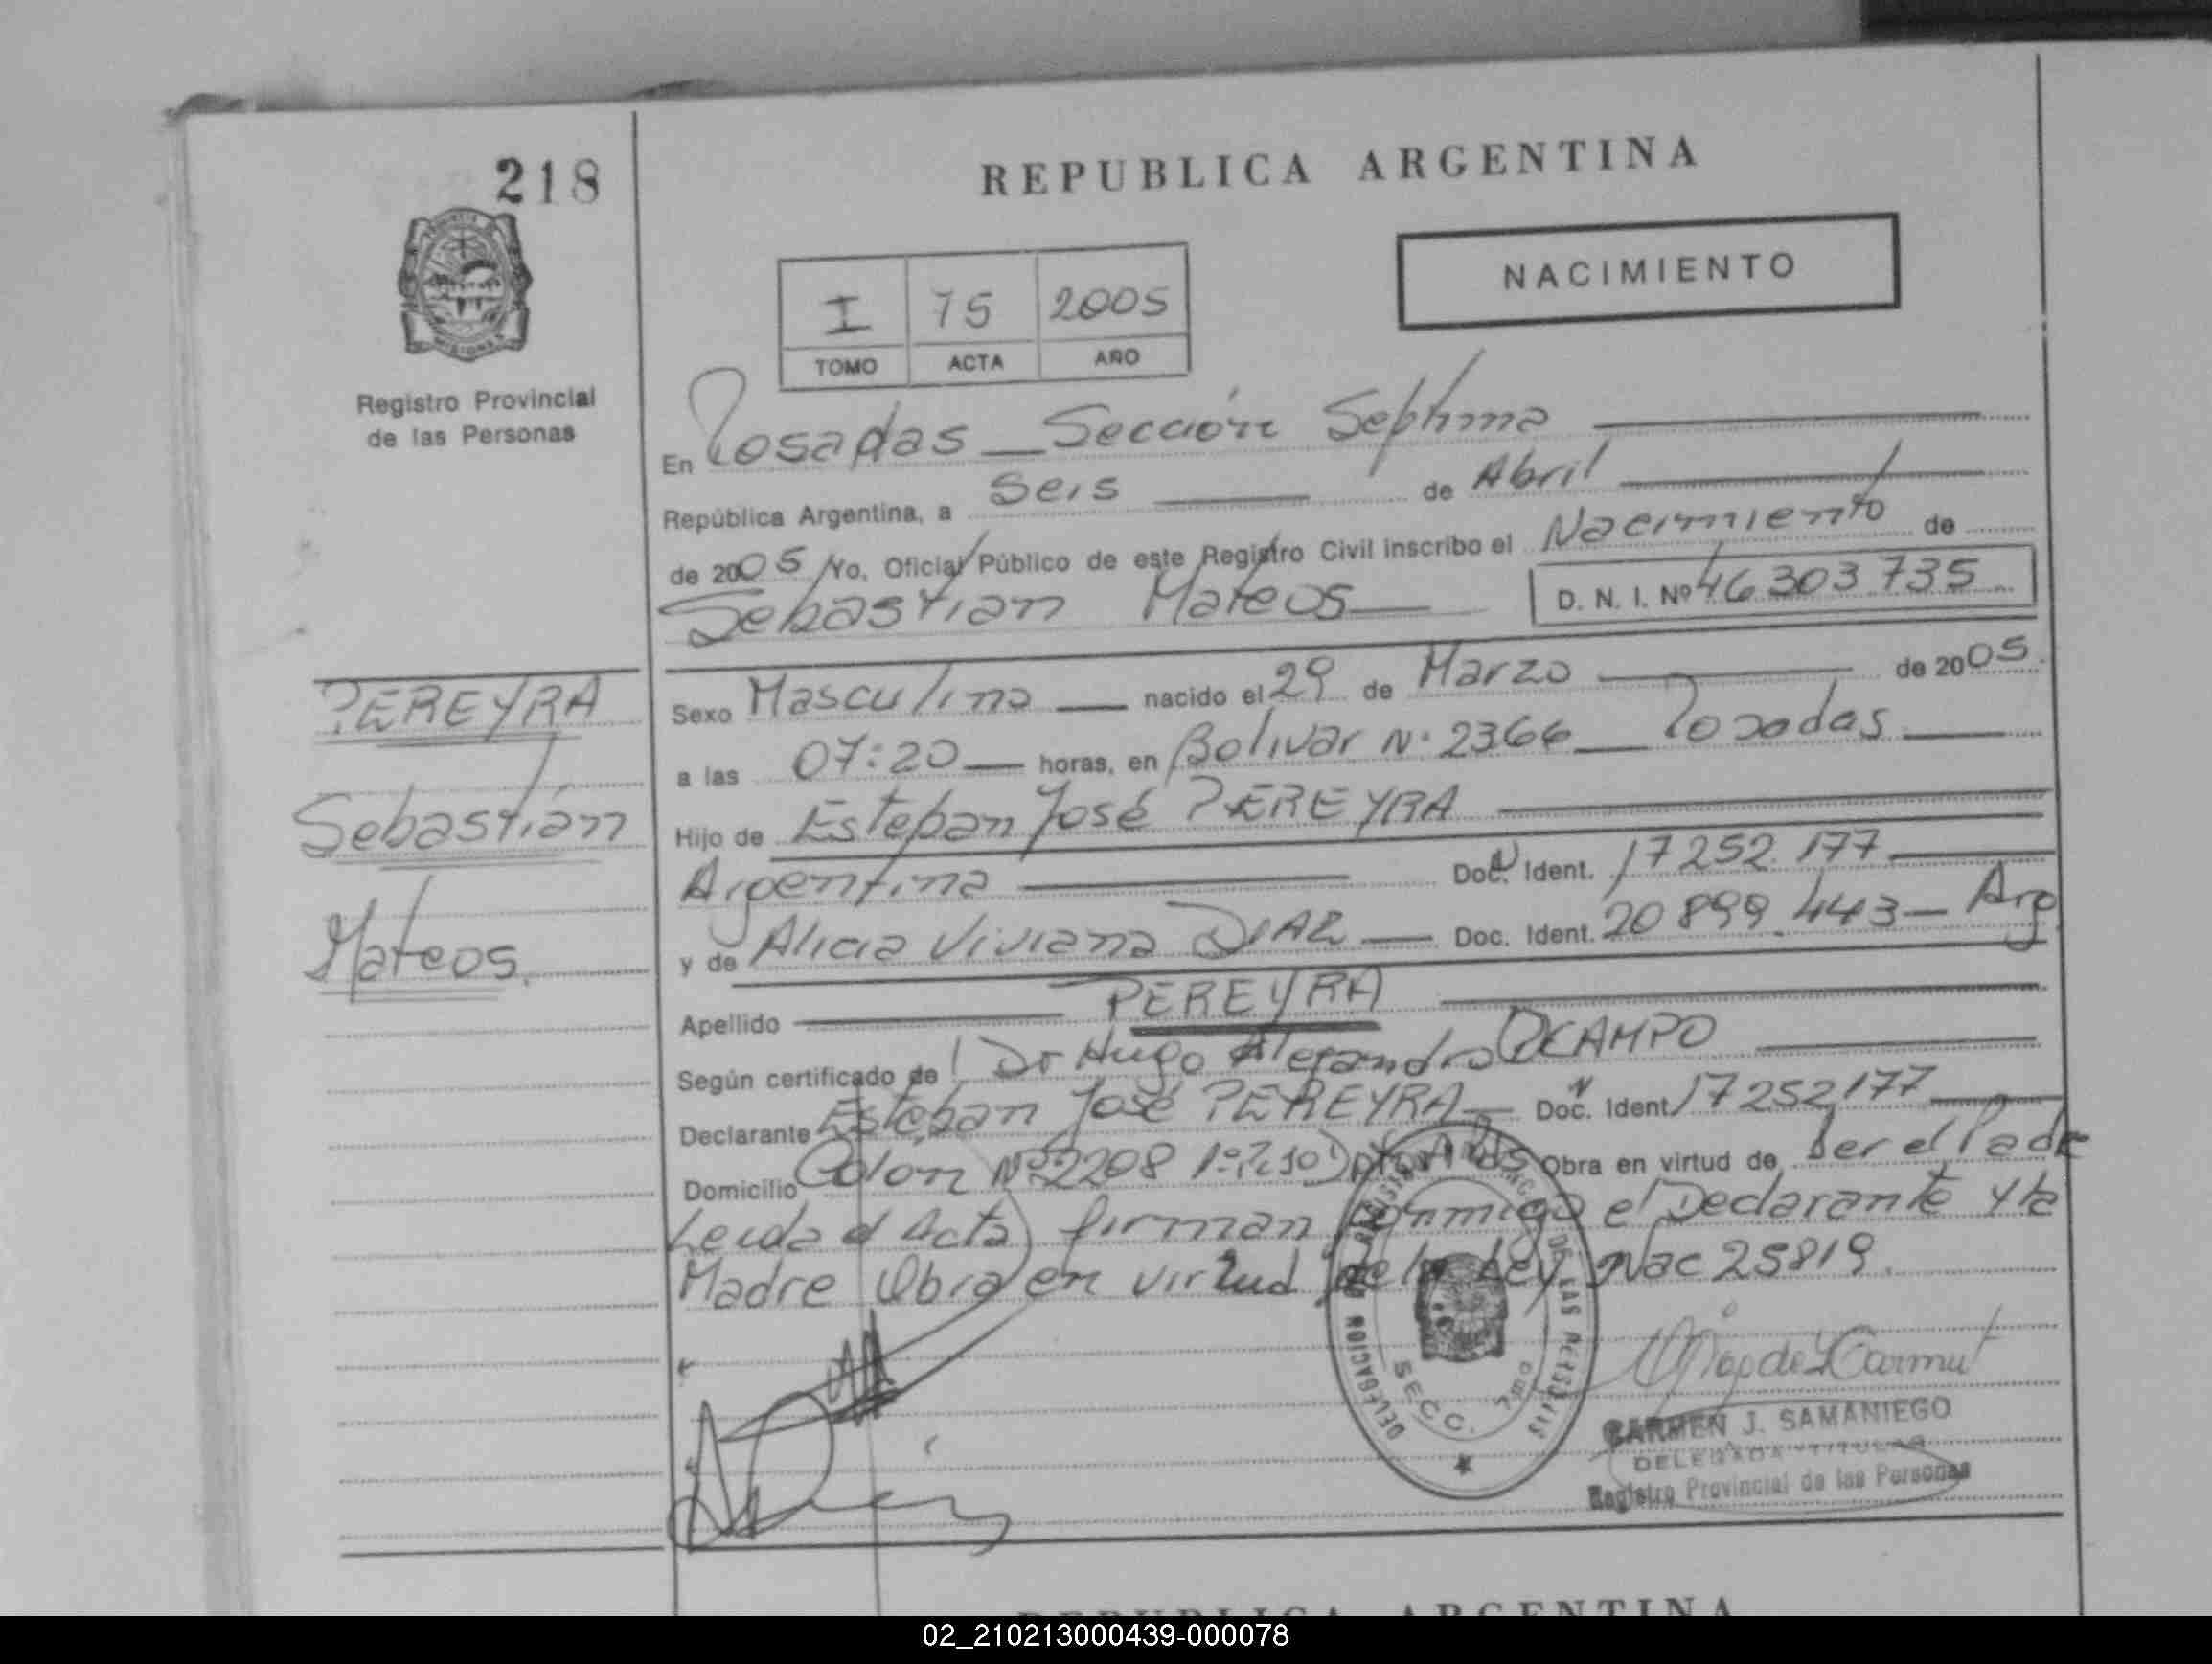 218
REPUBLICA ARGENTINA
NACIMIENTO
I 75 2005
TOMO ACTA AÑO
Registro Provincial
de las Personas
En Posadas — Sección Séptima
República Argentina, a Seis de Abril
de 2005 Yo, Oficial Público de este Registro Civil inscribo el Nacimiento de
Sebastián Mateos
D. N. I. Nº 46 303 735
PEREYRA
Sebastián
Mateos.
Sexo Masculino nacido el 29 de Marzo de 2005
a las 07:20 horas, en Bolivar Nº 2366 — Posadas
Hijo de Esteban José PEREYRA
Argentina Doc. Ident. 17252.177
y de Alicia Viviana DIAZ Doc. Ident. 20 899.443 — Arg
Apellido PEREYRA
Según certificado de l Dr Hugo Alejandro OCAMPO
Declarante Esteban José PEREYRA Doc. Ident 17252177
Domicilio Colón Nº 2208 Obra en virtud de Ser el Padre
Leida el Acta firman conmigo el Declarante y la
Madre Obra en virtud de la Ley Nac 25819.
DELEGACION REGISTRO PROVINCIAL DE LAS PERSONAS
SECC. 7ma
CARMEN J. SAMANIEGO
DELEGADA TITULAR
Registro Provincial de las Personas
REPUBLICA ARGENTINA
02_210213000439-000078